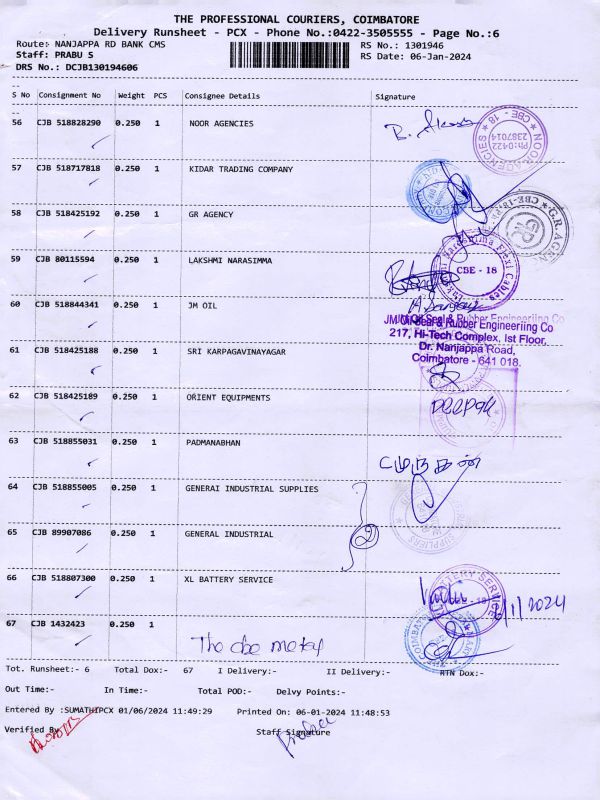 THE PROFESSIONAL COURIERS, COIMBATORE
Delivery Runsheet - PCX - Phone No.:0422-3505555 - Page No.:6
Route: NANJAPPA RD BANK CMS RS No.: 1301946
Staff: PRABU S RS Date: 06-Jan-2024
DRS No.: DCJB130194606
S No Consignment No Weight PCS Consignee Details Signature
56 CJB 518828290 0.250 1 NOOR AGENCIES
NOOR AGENCIES CBE - 18 Ph:0422 2387014
57 CJB 518717818 0.250 1 KIDAR TRADING COMPANY
58 CJB 518425192 0.250 1 GR AGENCY
59 CJB 80115594 0.250 1 LAKSHMI NARASIMMA
CBE - 18
60 CJB 518844341 0.250 1 JM OIL
JM Oil Seal & Rubber Engineeriing Co
217, Hi-Tech Complex, Ist Floor,
Dr. Nanjappa Road,
Coimbatore - 641 018.
61 CJB 518425188 0.250 1 SRI KARPAGAVINAYAGAR
62 CJB 518425189 0.250 1 ORIENT EQUIPMENTS
63 CJB 518855031 0.250 1 PADMANABHAN
64 CJB 518855005 0.250 1 GENERAI INDUSTRIAL SUPPLIES
65 CJB 89907086 0.250 1 GENERAL INDUSTRIAL
66 CJB 518807300 0.250 1 XL BATTERY SERVICE
67 CJB 1432423 0.250 1
Tot. Runsheet:- 6 Total Dox:- 67 I Delivery:- II Delivery:- RTN Dox:-
Out Time:- In Time:- Total POD:- Delvy Points:-
Entered By :SUMATHIPCX 01/06/2024 11:49:29 Printed On: 06-01-2024 11:48:53
Verified By Staff Signature